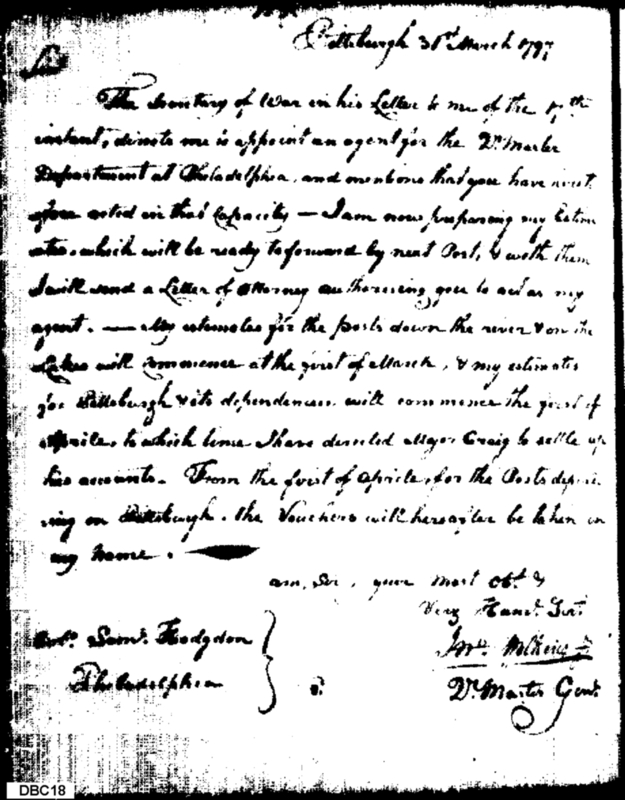 Pittsburgh 31st March 1797
Sir
The Secretary of War in his Letter to me of the 17th
instant, directs me to appoint an agent for the Qr Master
Department at Philadelphia, and mentions that you have
acted in that Capacity — I am now preparing my Estim
ates, which will be ready to forward by next Post, & with them
I will send a Letter of Attorney authorising you to act as my
agent. — My estimates for the posts down the river & on the
Lakes will commence at the first of March, & my estimates
for Pittsburgh & its dependencies will commence the first of
Aprile, to which time I have directed Major Craig to settle up
his accounts. From the first of Aprile, for the Posts depend
ing on Pittsburgh, the Vouchers will hereafter be taken in
my name.
am, Sir, your most Obt. &
Very Hume. Servt.
Jno. Wilkins Jr
Qr. Master Genl.
Saml. Hodgdon
Philadelphia
DBC18